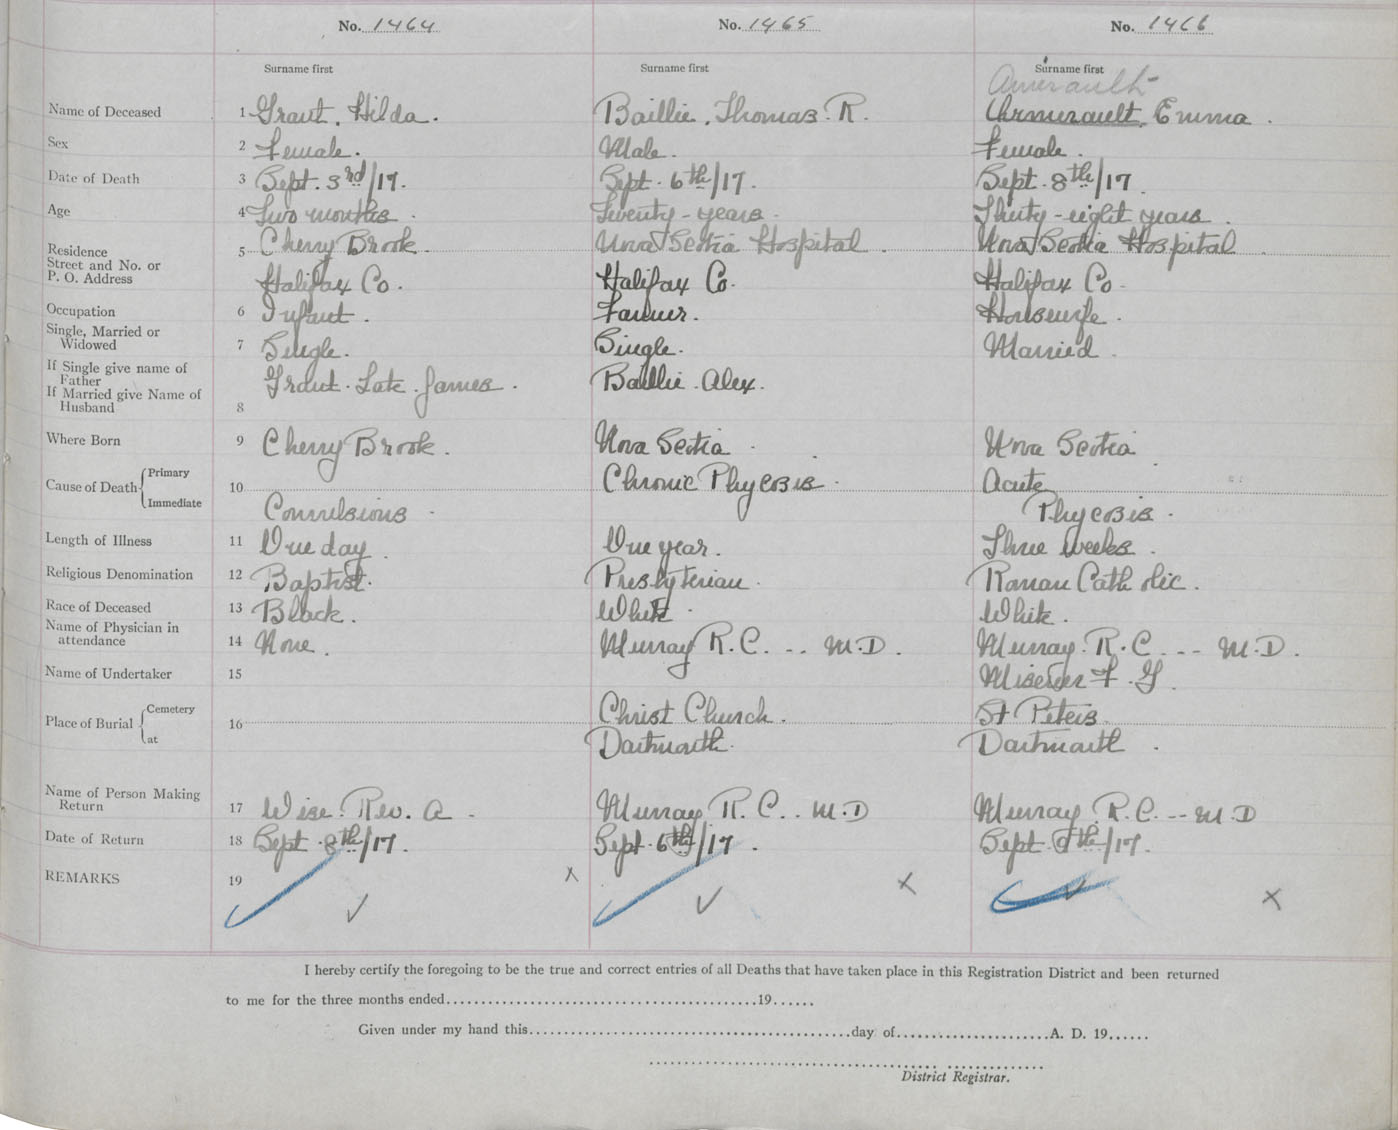 No. 1464 No. 1465 No. 1466
Surname first Surname first Surname first
Amerault
Name of Deceased 1 Grant, Hilda. Baillie, Thomas R. Armerault, Emma.
Sex 2 Female. Male. Female.
Date of Death 3 Sept. 3rd/17. Sept. 6th/17. Sept. 8th/17
Age 4 Two months. Twenty-years. Thirty-eight years.
Residence 5 Cherry Brook. Nova Scotia Hospital. Nova Scotia Hospital
Street and No. or
P. O. Address Halifax Co. Halifax Co. Halifax Co-
Occupation 6 Infant. Farmer. Housewife.
Single, Married or
Widowed 7 Single. Single. Married.
If Single give name of
Father Grant. Late. James. Baillie. Alex.
If Married give Name of
Husband 8
Where Born 9 Cherry Brook. Nova Scotia. Nova Scotia
Cause of Death Primary 10 Chronic Phycosis. Acute
Immediate Convulsions Phycosis.
Length of Illness 11 One day. One year. Three weeks.
Religious Denomination 12 Baptist. Presbyterian. Roman Catholic.
Race of Deceased 13 Black. White. White.
Name of Physician in
attendance 14 None. Murray R.C. -- M.D. Murray. R.C. -- M.D.
Name of Undertaker 15 F. G.
Place of Burial Cemetery 16 Christ Church. St Peters.
at Dartmouth. Dartmouth.
Name of Person Making
Return 17 Wise. Rev. A. Murray. R.C.. M.D Murray. R.C. -- M.D
Date of Return 18 Sept. 8th/17. Sept. 6th/17. Sept. 8th/17.
REMARKS 19
I hereby certify the foregoing to be the true and correct entries of all Deaths that have taken place in this Registration District and been returned
to me for the three months ended..........19......
Given under my hand this..........day of..........A. D. 19......
District Registrar.